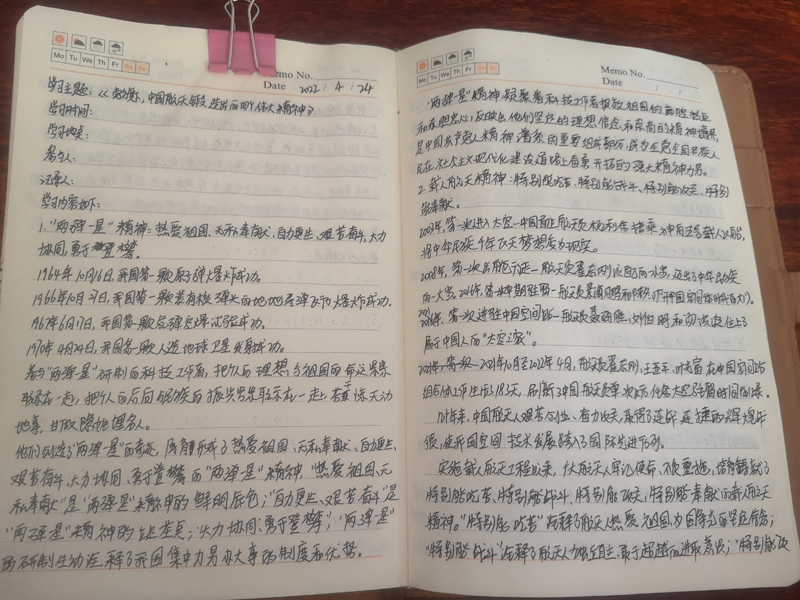 Mo Tu We Th Fr Sa Su
Memo No.
Date 2022 / 4 / 24
学习主题:《致敬,中国航天铸造出的四个伟大精神》
学习时间:
学习地点:
参与人:
记录人:
学习内容如下:
1."两弹一星"精神:热爱祖国、无私奉献、自力更生、艰苦奋斗、大力
协同、勇于登攀。
1964年10月16日,我国第一颗原子弹爆炸成功。
1966年10月27日,我国第一颗装有核弹头的地地导弹飞行爆炸成功。
1967年6月17日,我国第一颗氢弹空爆试验成功。
1970年4月24日,我国第一颗人造地球卫星发射成功。
参与"两弹一星"研制的科技工作者,把个人的理想与祖国的命运紧紧
联系在一起,把个人的志向与民族的振兴紧紧联系在一起,干惊天动
地事,甘做隐姓埋名人。
他们创造了"两弹一星"的奇迹,所形成了热爱祖国、无私奉献、自力更生、
艰苦奋斗、大力协同、勇于登攀的"两弹一星"精神,"热爱祖国、无
私奉献"是"两弹一星"精神的鲜明底色;"自力更生、艰苦奋斗"是
"两弹一星"精神的立足点;"大力协同、勇于登攀","两弹一星"
的研制生动诠释了我国集中力量办大事的制度和优势。
Mo Tu We Th Fr Sa Su
Memo No.
Date / /
"两弹一星"精神凝聚着科技工作者报效祖国的满腔热血
和赤胆忠心,反映出他们坚定的理想信念和崇高的精神境界,
是中国共产党人精神谱系的重要组成部分,成为全党全国各族人
民在社会主义现代化建设道路上奋勇开拓的强大精神力量。
2.载人航天精神:特别能吃苦、特别能战斗、特别能攻关、特别
能奉献。
2003年,第一次进入太空—中国首位航天员杨利伟搭乘神舟五号载人飞船,
将中华民族千年飞天梦想变为现实。
2008年,第一次出舱行走—航天员翟志刚
第一次进驻中国空间站—航天员聂海胜、刘伯明和汤洪波住上了
属于中国人的"太空之家"。
2021年10月至2022年4月,航天员翟志刚、王亚平、叶光富在中国空间站
组合体工作生活183天,刷新了中国航天员单次飞行任务太空驻留时间的纪录。
中国航天人艰苦创业、奋力攻关,取得了连战连捷的辉煌战
绩,使我国空间技术发展跨入了国际先进行列。
实施载人航天工程以来,广大航天人牢记使命、不负重托,培育铸就了
特别能吃苦、特别能战斗、特别能攻关、特别能奉献的载人航天
精神。"特别能吃苦"诠释了航天人热爱祖国、为国争光的坚定信念;
"特别能战斗"诠释了航天人独立自主、勇于超越的进取意识;"特别能攻